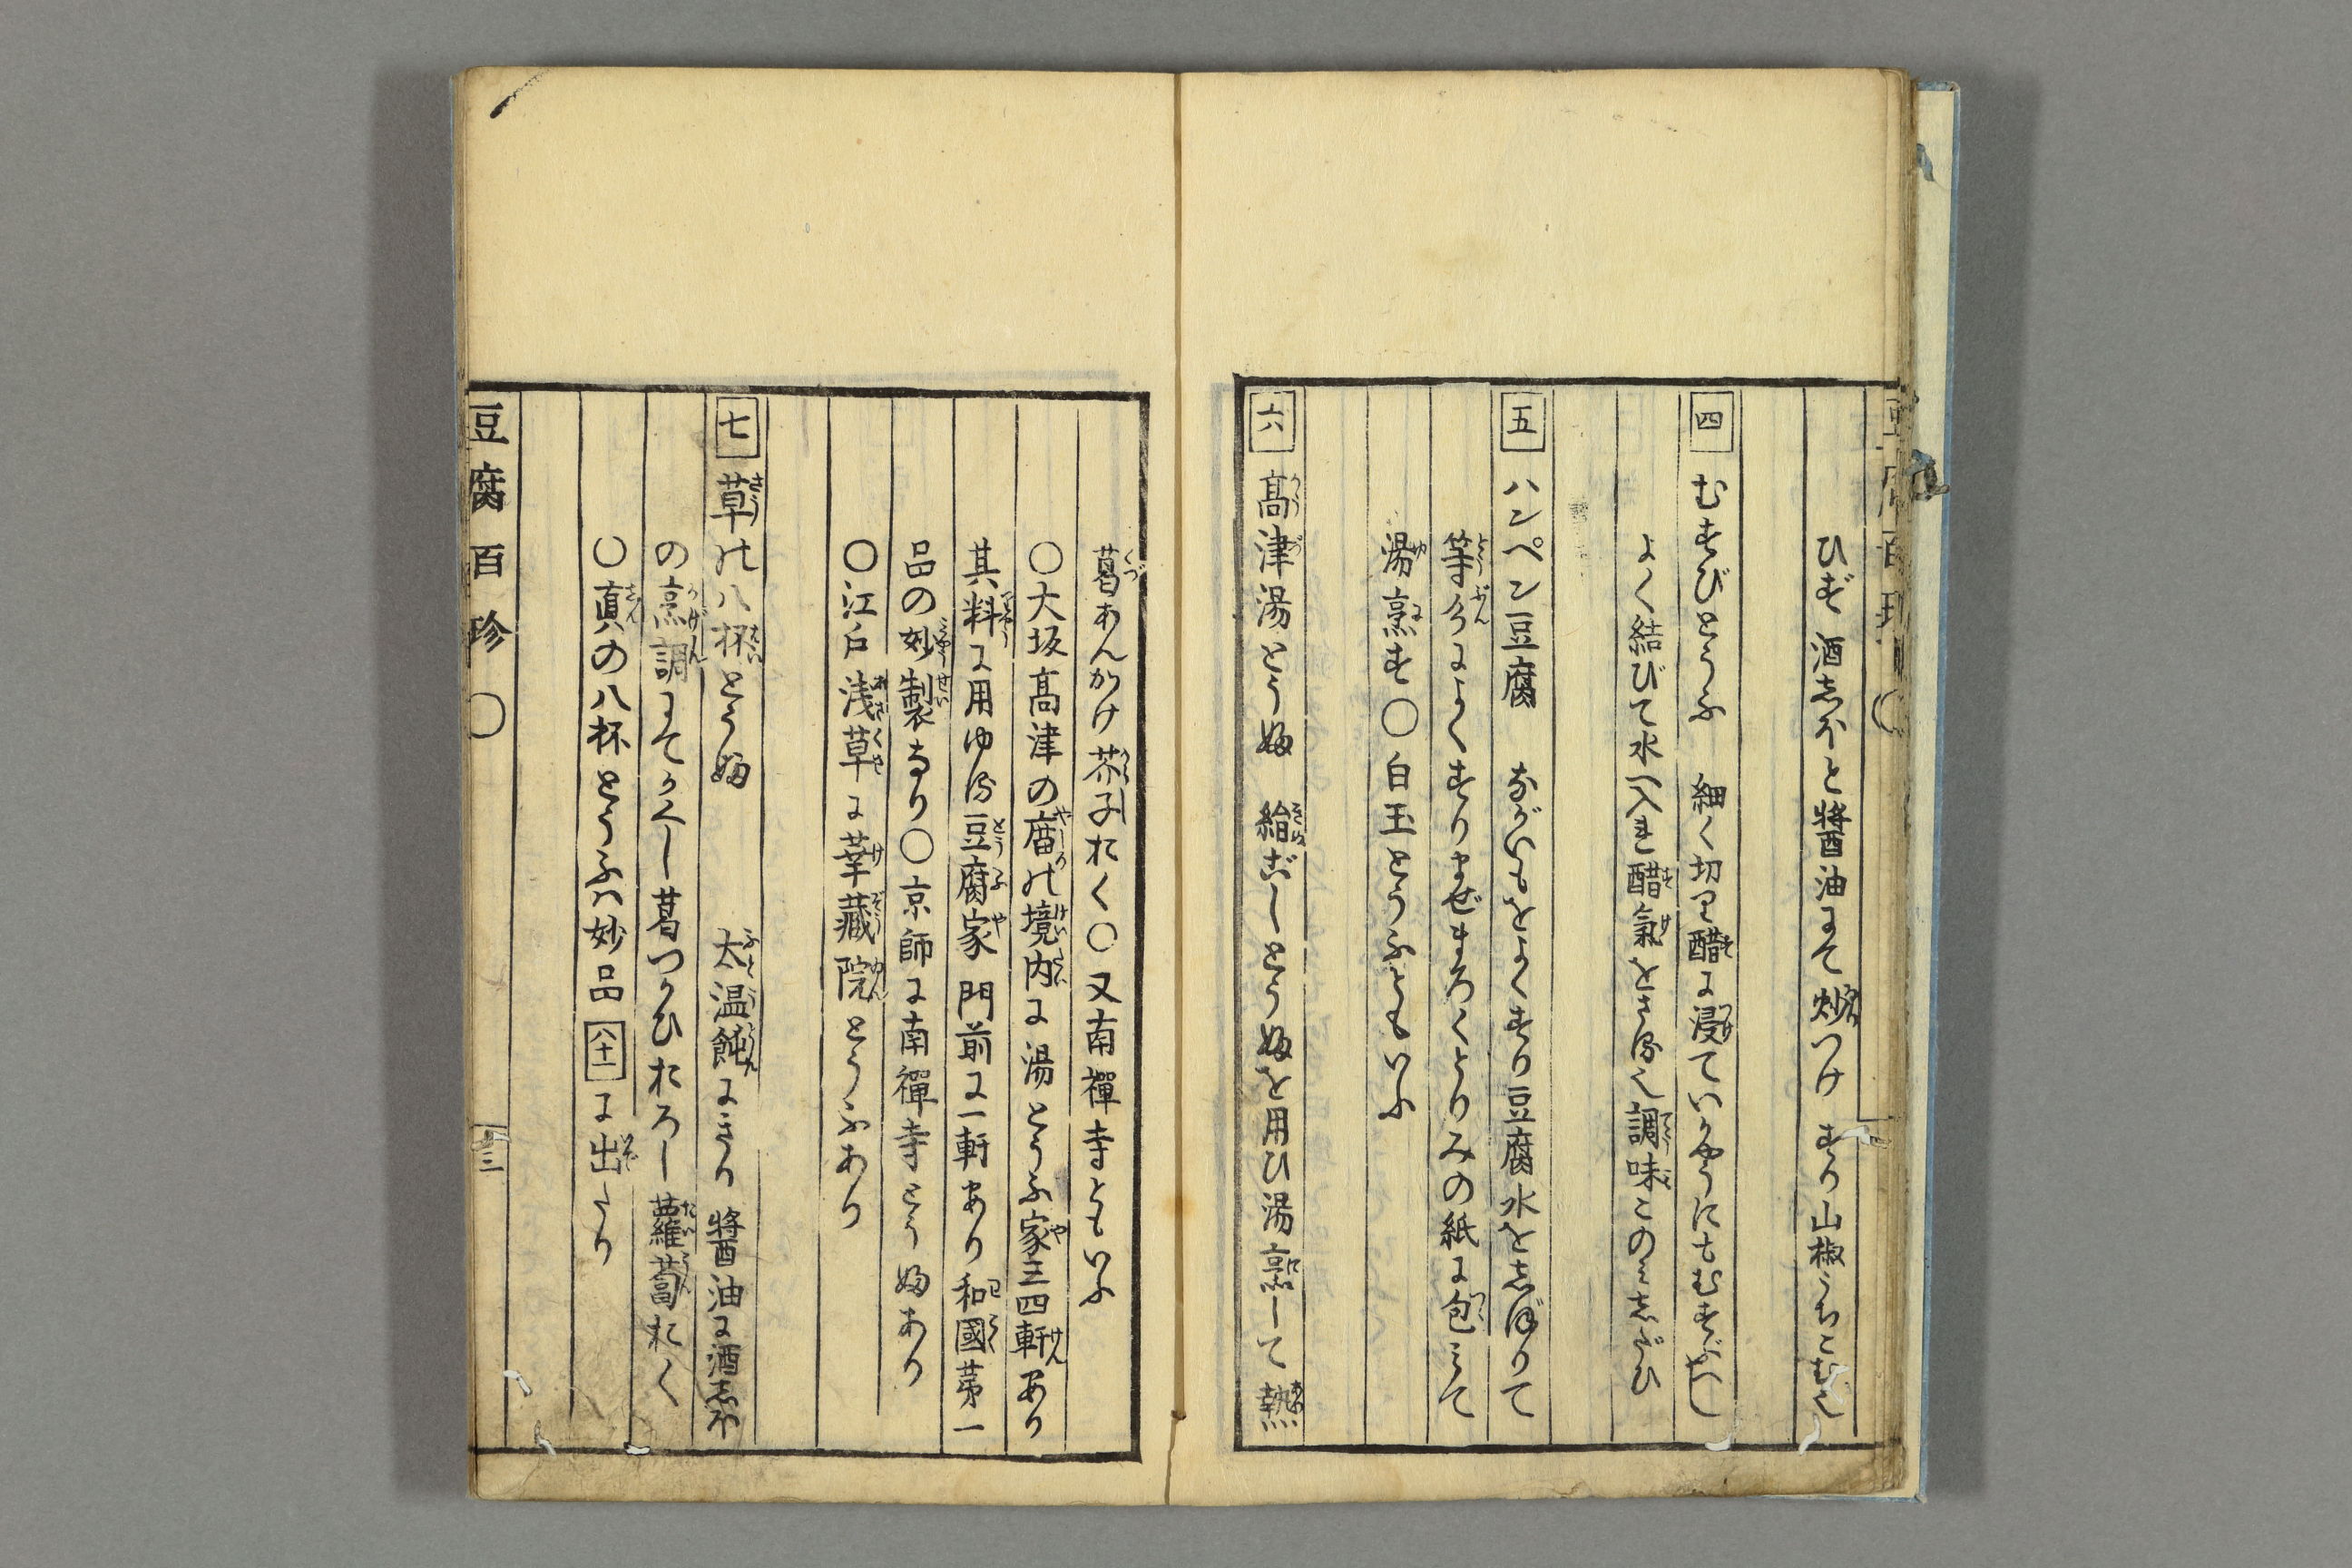 豆腐百珍 〇
ひず 酒志ほと醤油にて炒つけ すり山椒うちこむ也
四 むすびとうふ 細く切り醋に浸ていかやうにもむすぶべし
よく結びて水へ入れ醋氣をさる也調味このみ志だひ
五 ハンペン豆腐 ながいもをよくすり豆腐水を志ぼりて
等分によくすりまぜまろくとりみの紙に包みて
湯烹す〇白玉とうふともいふ
六 髙津湯とうふ 絹ごしとうふを用ひ湯烹して熱
葛あんかけ芥子おく〇又南禪寺ともいふ
〇大坂髙津の庿の境内に湯とうふ家三四軒あり
其料に用ゆる豆腐家門前に一軒あり和國第一
品の妙製なり〇京師に南禪寺とうふあり
〇江戸浅草に華藏院とうふあり
七 草の八杯とうふ 太温飩にきり醤油に酒志ほ
の烹調にてかくし葛つかひおろし蘿蔔おく
〇真の八杯とうふハ妙品八十一に出たり
豆腐百珍 〇 三